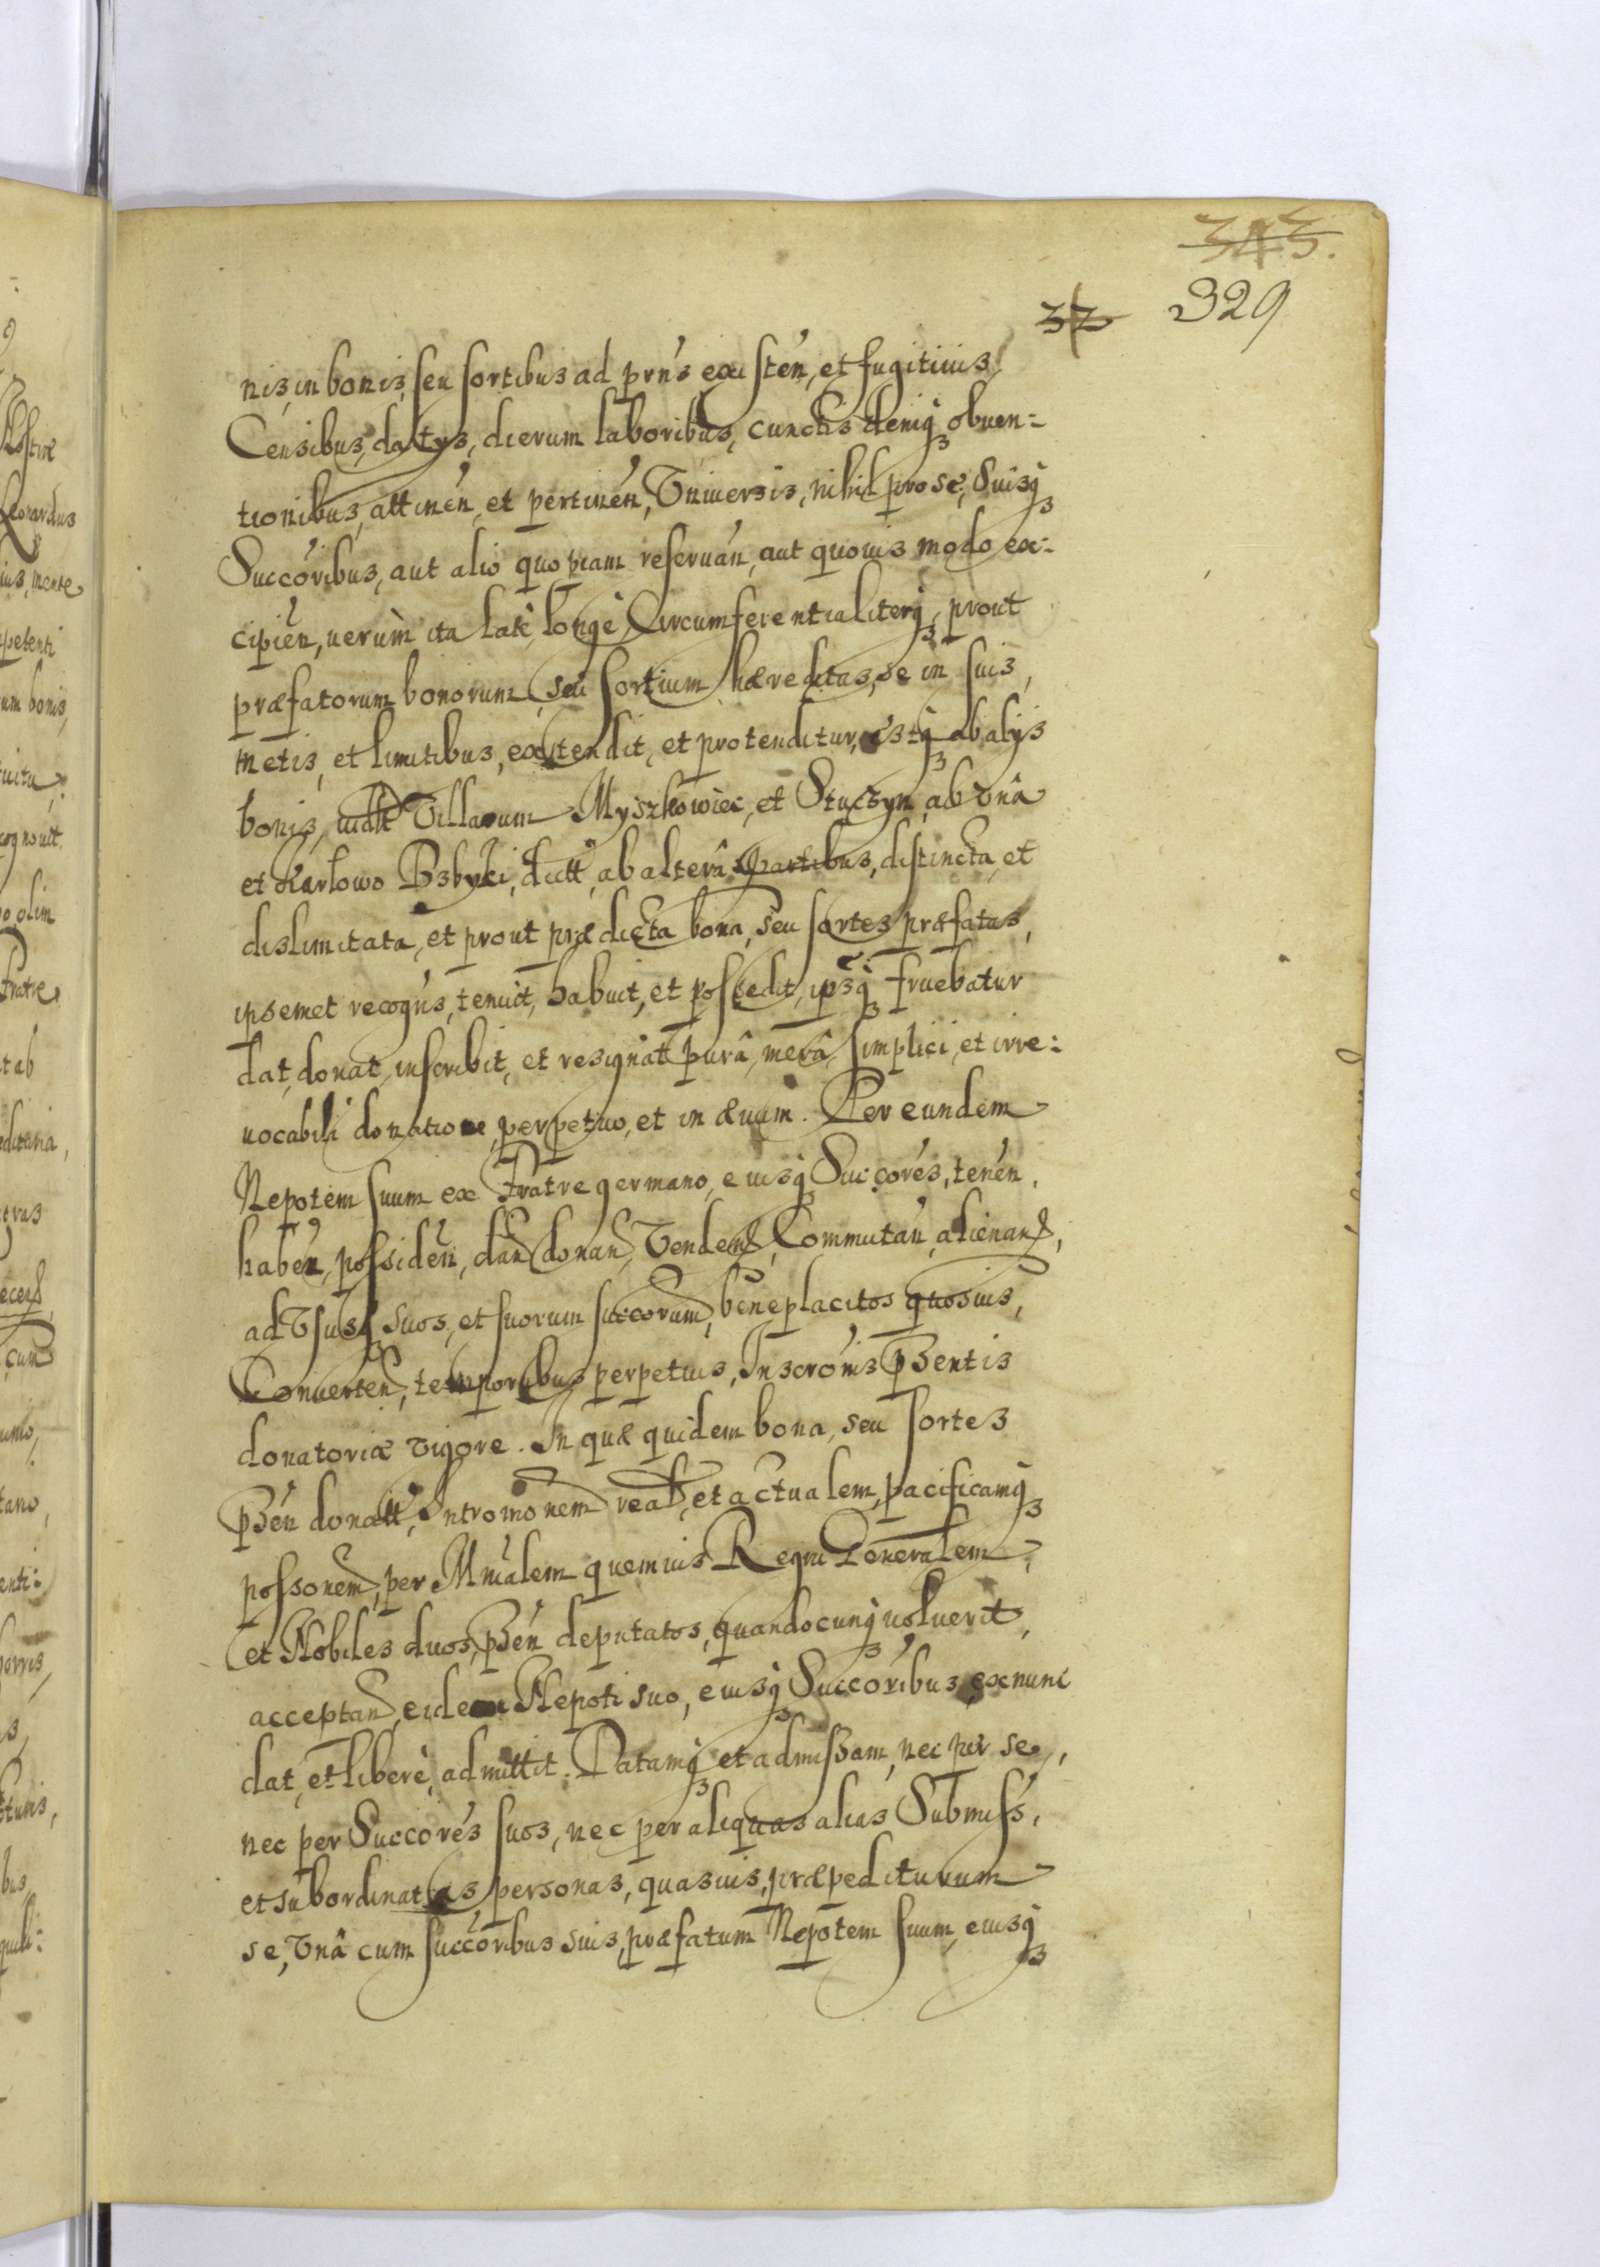 343.
37 329
nis, in bonis, seu sortibus ad prns existen, et fugitiuis,
Censibus, datys, dierum laboribus, cunctis deniqꝫ obuen-
tionibus, attinen, et pertinen, Vniuersis, nihil pro se, Suisqꝫ
Succoribus, aut alio quopiam reseruan, aut quouis modo ex-
cipien, uerùm ita latè, longè, Circumferentialiterqꝫ, prout
præfatorum bonorum, seu sortium hæreditas, se in suis,
metis, et limitibus, extendit, et protenditur, estqꝫ ab alys
bonis, uidlt Villarum Myszkowiec, et Stuczyn, ab vnâ
et Karłowo dictt, ab alterâ Partibus, distincta, et
dislimitata, et prout prædicta bona, seu sortes præfatas,
ipsemet recogns, tenuit, habuit, et possedit, ipsqꝫ fruebatur
dat, donat, inscribit, et resignat purâ, merâ, simplici, et irre-
uocabili donatione, perpetuo, et in æuum. Per eundem
Nepotem suum ex Fratre germano, eiusqꝫ Succores, tenen,
haben, possiden, dan, donan, Venden, Commutan, alienan,
ad Vsusqꝫ suos, et suorum succorum, beneplacitos quosuis,
Conuerten, temporibus perpetuis, Inscronis pꝫentis
donatoriæ vigore. In quæ quidem bona, seu sortes
pꝫen donatt, Intromonem real, et actualem, pacificamqꝫ
possonem, per Mnialem quemuis Regni Generalem,
et Nobiles duos, pꝫen deputatos, quandocunqꝫ uoluerit,
acceptan, eidem Nepoti suo, eiusqꝫ Succoribus, ex nunc
dat, et liberè, admittit. Datamqꝫ et admissam, nec per se,
nec per Succores suos, nec per aliquas alias Submiss,
et subordinatas, personas, quasuis, præpediturum
se, Vnâ cum succoribus suis, præfatum Nepotem suum, eiusqꝫ